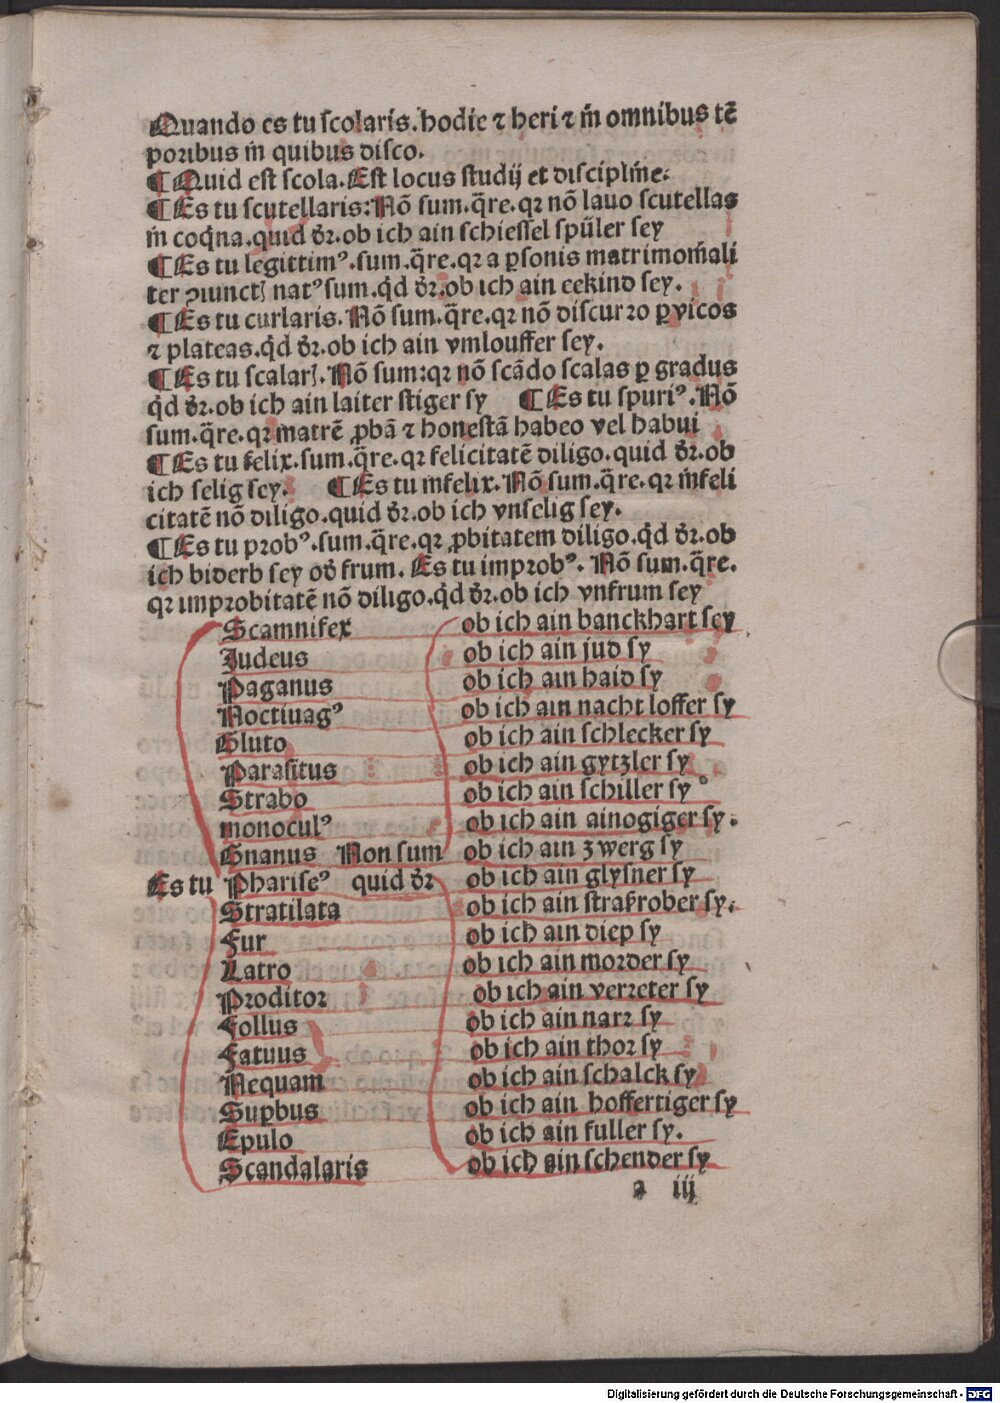 Quando es tu ſcolaris. hodie ⁊ heri ⁊ in̄ omnibus tē
poꝛibus in̄ quibus diſco.
¶ Quid eſt ſcola. Eſt locus ſtudij et diſciplin̄e.
¶ Es tu ſcutellaris: Nō ſum. q̄re. qꝛ nō lauo ſcutellas
in̄ coq̄na. quid dr̄. ob ich ain ſchieſſel ſpüler ſey
¶ Es tu legittimꝰ. ſum. q̄re. qꝛ a ꝑſonis matrimoniali
ter ꝯiunctꝭ natꝰ ſum. qd̓ dr̄. ob ich ain eekind ſey.
¶ Es tu curſaris. Nō ſum. q̄re. qꝛ nō diſcurꝛo ꝑ vicos
⁊ plateas. qd̓ dr̄. ob ich ain vmlouffer ſey.
¶ Es tu ſcalarꝭ. Nō ſum: qꝛ nō ſcādo ſcalas ꝑ gradus
qd̓ dr̄. ob ich ain laiter ſtiger ſy ¶ Es tu ſpuriꝰ. Nō
ſum. q̄re. qꝛ matrē ꝓbā ⁊ honeſtā habeo vel habui
¶ Es tu felix. ſum. q̄re. qꝛ felicitatē diligo. quid dr̄. ob
ich ſelig ſey. ¶ Es tu in̄felix. Nō ſum. q̄re. qꝛ in̄feli
citatē nō diligo. quid dr̄. ob ich vnſelig ſey.
¶ Es tu pꝛobꝰ. ſum. q̄re. qꝛ ꝓbitatem diligo. qd̓ dr̄. ob
ich biderb ſey od̓ frum. Es tu impꝛobꝰ. Nō ſum. q̄re.
qꝛ impꝛobitatē nō diligo. qd̓ dr̄. ob ich vnfrum ſey
Scamnifex ob ich ain banckhart ſey
Judeus ob ich ain jud ſy
Paganus ob ich ain haid ſy
Noctiuagꝰ ob ich ain nacht loffer ſy
Gluto ob ich ain ſchlecker ſy
Paraſitus ob ich ain gytzler ſy
Strabo ob ich ain ſchiller ſy
monoculꝰ ob ich ain ainogiger ſy.
Gnanus Non ſum ob ich ain zwerg ſy
Es tu Phariſeꝰ quid dr̄ ob ich ain glyſner ſy
Stratilata ob ich ain ſtraſrober ſy.
Fur ob ich ain diep ſy
Latro ob ich ain morder ſy
Proditoꝛ ob ich ain verꝛeter ſy
Follus ob ich ain narꝛ ſy
Fatuus ob ich ain thoꝛ ſy
Nequam ob ich ain ſchalck ſy
Suꝑbus ob ich ain hoffertiger ſy
Epulo ob ich ain fuller ſy.
Scandalaris ob ich ain ſchender ſy
a iij
Digitalisierung gefördert durch die Deutsche Forschungsgemeinschaft - DFG